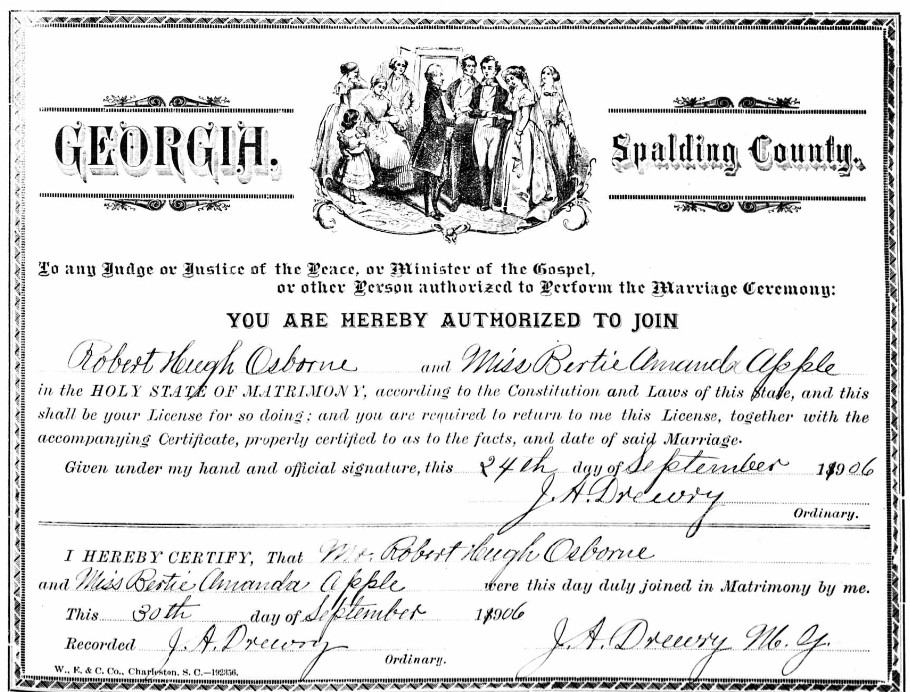 GEORGIA.
Spalding County.
To any Judge or Justice of the Peace, or Minister of the Gospel,
or other Person authorized to Perform the Marriage Ceremony:
YOU ARE HEREBY AUTHORIZED TO JOIN
Robert Hugh Osborne and Miss Bertie Amanda Apple
in the HOLY STATE OF MATRIMONY, according to the Constitution and Laws of this State, and this
shall be your License for so doing; and you are required to return to me this License, together with the
accompanying Certificate, properly certified to as to the facts, and date of said Marriage.
Given under my hand and official signature, this 24th day of September 1906
J. A. Drewry
Ordinary.
I HEREBY CERTIFY, That Mr. Robert Hugh Osborne
and Miss Bertie Amanda Apple were this day duly joined in Matrimony by me.
This 30th day of September 1906
Recorded J. A. Drewry J. A. Drewry M. G.
Ordinary.
W., E. & C. Co., Charleston, S. C.—192356.